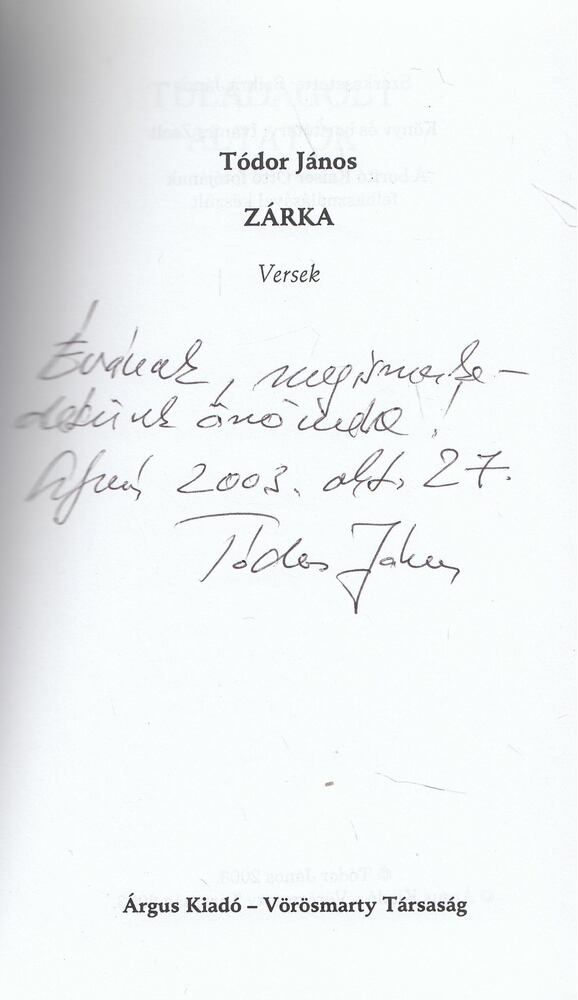 Tódor János
ZÁRKA
Versek
Évának, megismerke-
désünk örömére!
2003. okt. 27.
Tódor János
Árgus Kiadó – Vörösmarty Társaság